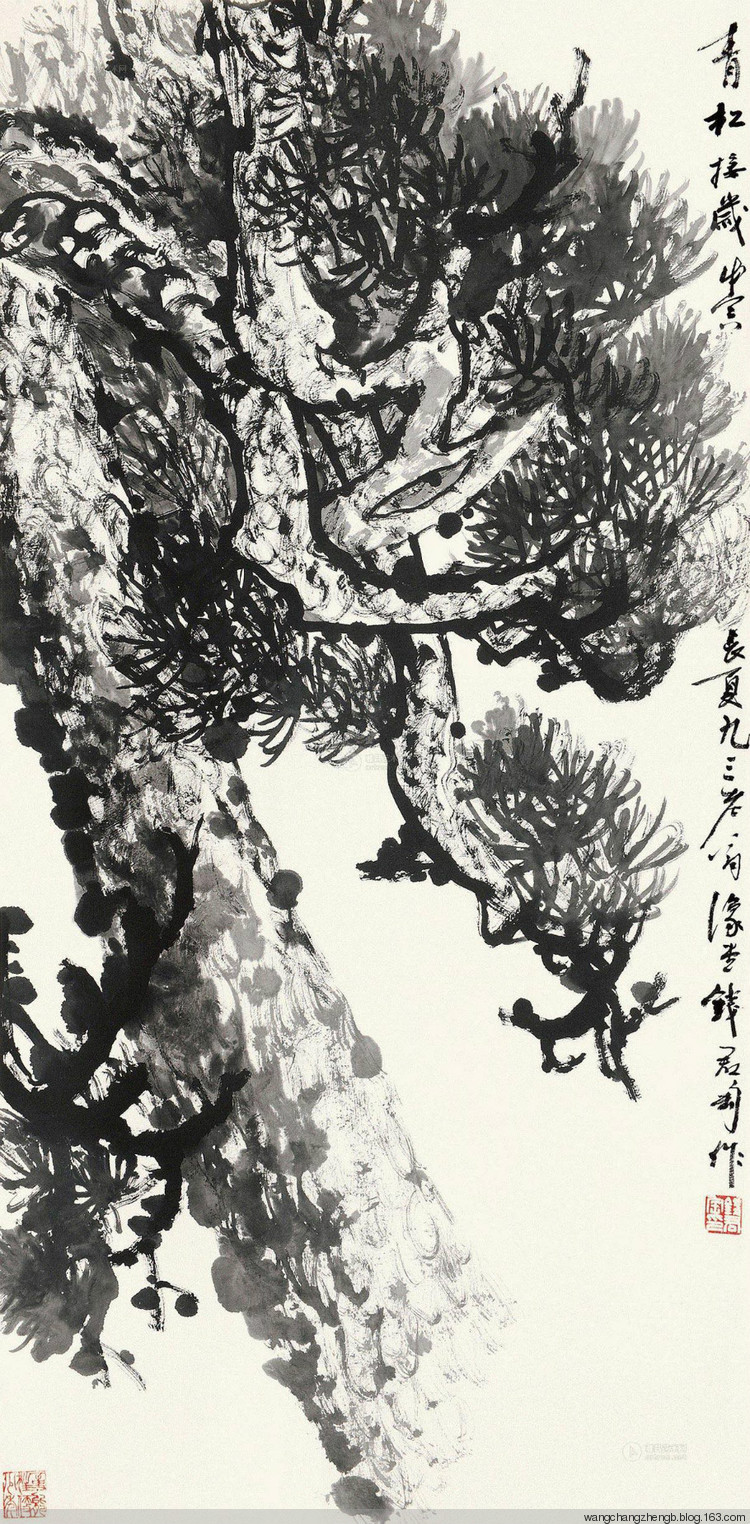 青松接歲
長夏九三老翁豫堂錢君匋作
wangchangzhengb.blog.163.com